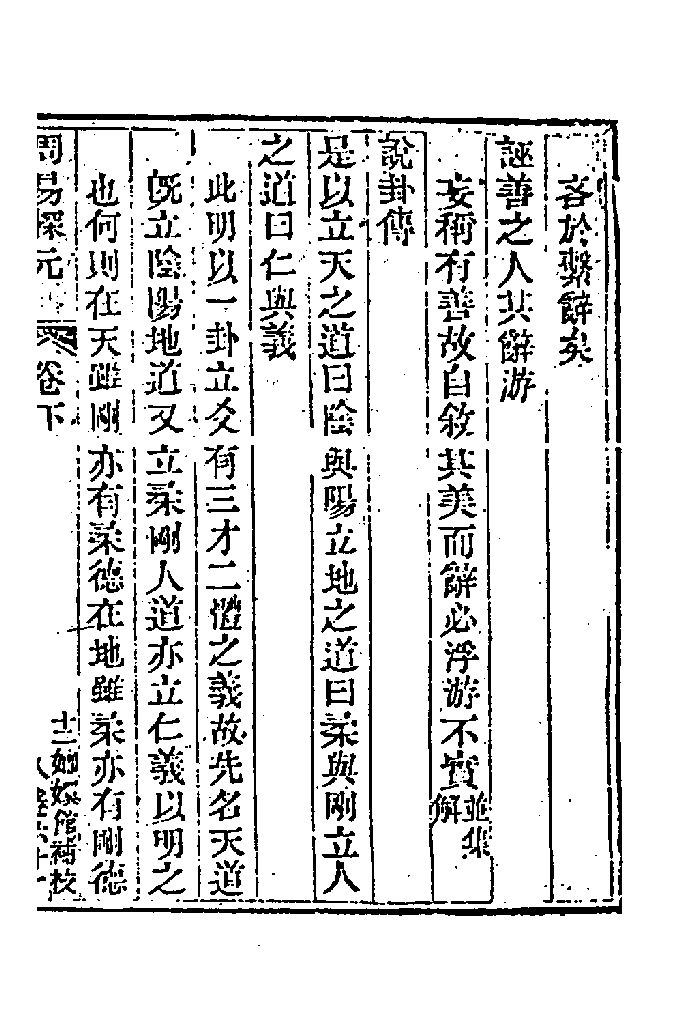 吝於繫辭矣
誣善之人其辭游
妄稱有善故自敘其美而辭必浮游不實並集解
說卦傳
是以立天之道曰陰與陽立地之道曰柔與剛立人
之道曰仁與義
此明以一卦立爻有三才二體之義故先名天道
旣立陰陽地道又立柔剛人道亦立仁義以明之
也何則在天雖剛亦有柔德在地雖柔亦有剛德
周易探元 卷下 十二 嫏嬛館補校